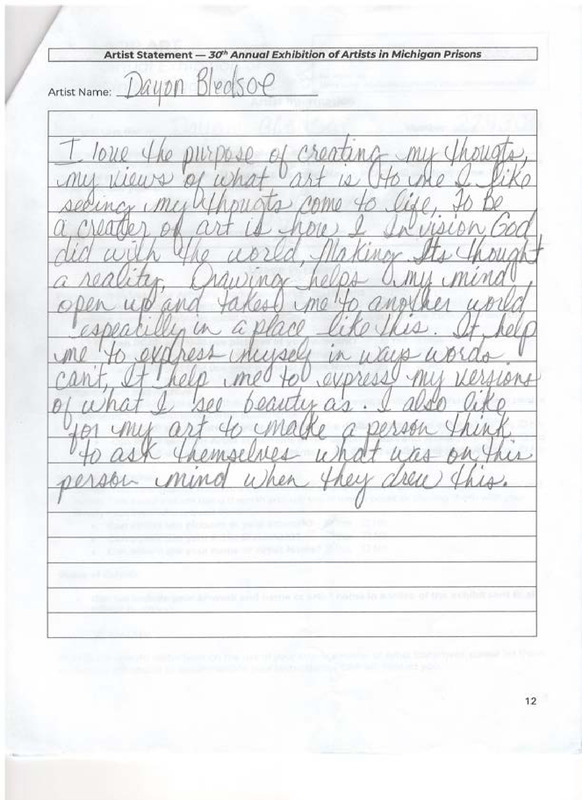 Artist Statement — 30th Annual Exhibition of Artists in Michigan Prisons
Artist Name: Dayon Bledsoe
I love the purpose of creating my thougts,
my views of what art is to me I like
seeing my thougts come to life, To be
a creater of art is how I Invision God
did with the world, Making Its thought
a reality, Drawing helps my mind
open up and takes me to another world
espeacilly in a place like this. It help
me to express myself in ways words
can't, It help me to express my versions
of what I see beauty as. I also like
for my art to make a person think
to ask themselves what was on this
person mind when they drew this.
12